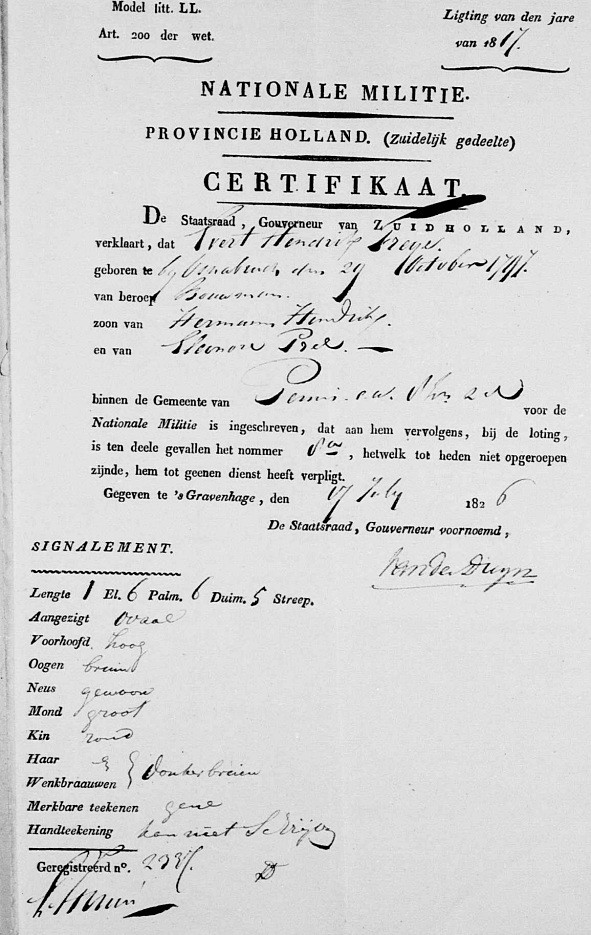 Model litt. LL.
Art. 200 der wet.
Ligting van den jare
van 1817.
NATIONALE MILITIE.
PROVINCIE HOLLAND. (Zuidelijk gedeelte)
CERTIFIKAAT.
De Staatsraad, Gouverneur van ZUIDHOLLAND,
verklaart, dat Evert Hendrik
geboren te by Osnabruck den 29 October 1797.
van beroep Bouwman.
zoon van Hermann Hendrik.
en van Eleonora
binnen de Gemeente van Pernis voor de
Nationale Militie is ingeschreven, dat aan hem vervolgens, bij de loting,
is ten deele gevallen het nommer , hetwelk tot heden niet opgeroepen
zijnde, hem tot geenen dienst heeft verpligt.
Gegeven te 's Gravenhage, den 17 July 1826
De Staatsraad, Gouverneur voornoemd,
van der Duyn
SIGNALEMENT.
Lengte 1 El. 6 Palm. 6 Duim. 5 Streep.
Aangezigt ovaal
Voorhoofd hoog
Oogen bruin
Neus gewoon
Mond groot
Kin rond
Haar
Wenkbraauwen } donkerbruin
Merkbare teekenen gene
Handteekening kan niet Schrijven
Geregistreerd n°.